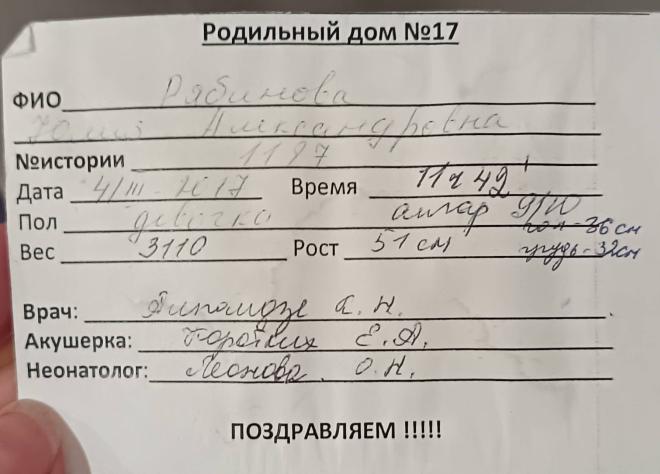 Родильный дом №17
ФИО Рябинова
Юлия Александровна
№истории 1187
Дата 4/III-2017 Время 11ч 42'
Пол девочка апгар 9/10
гол-36 см
Вес 3110 Рост 51 см грудь-32см
Врач: К. Н.
Акушерка: Е.А.
Неонатолог: Леонова О.Н.
ПОЗДРАВЛЯЕМ !!!!!